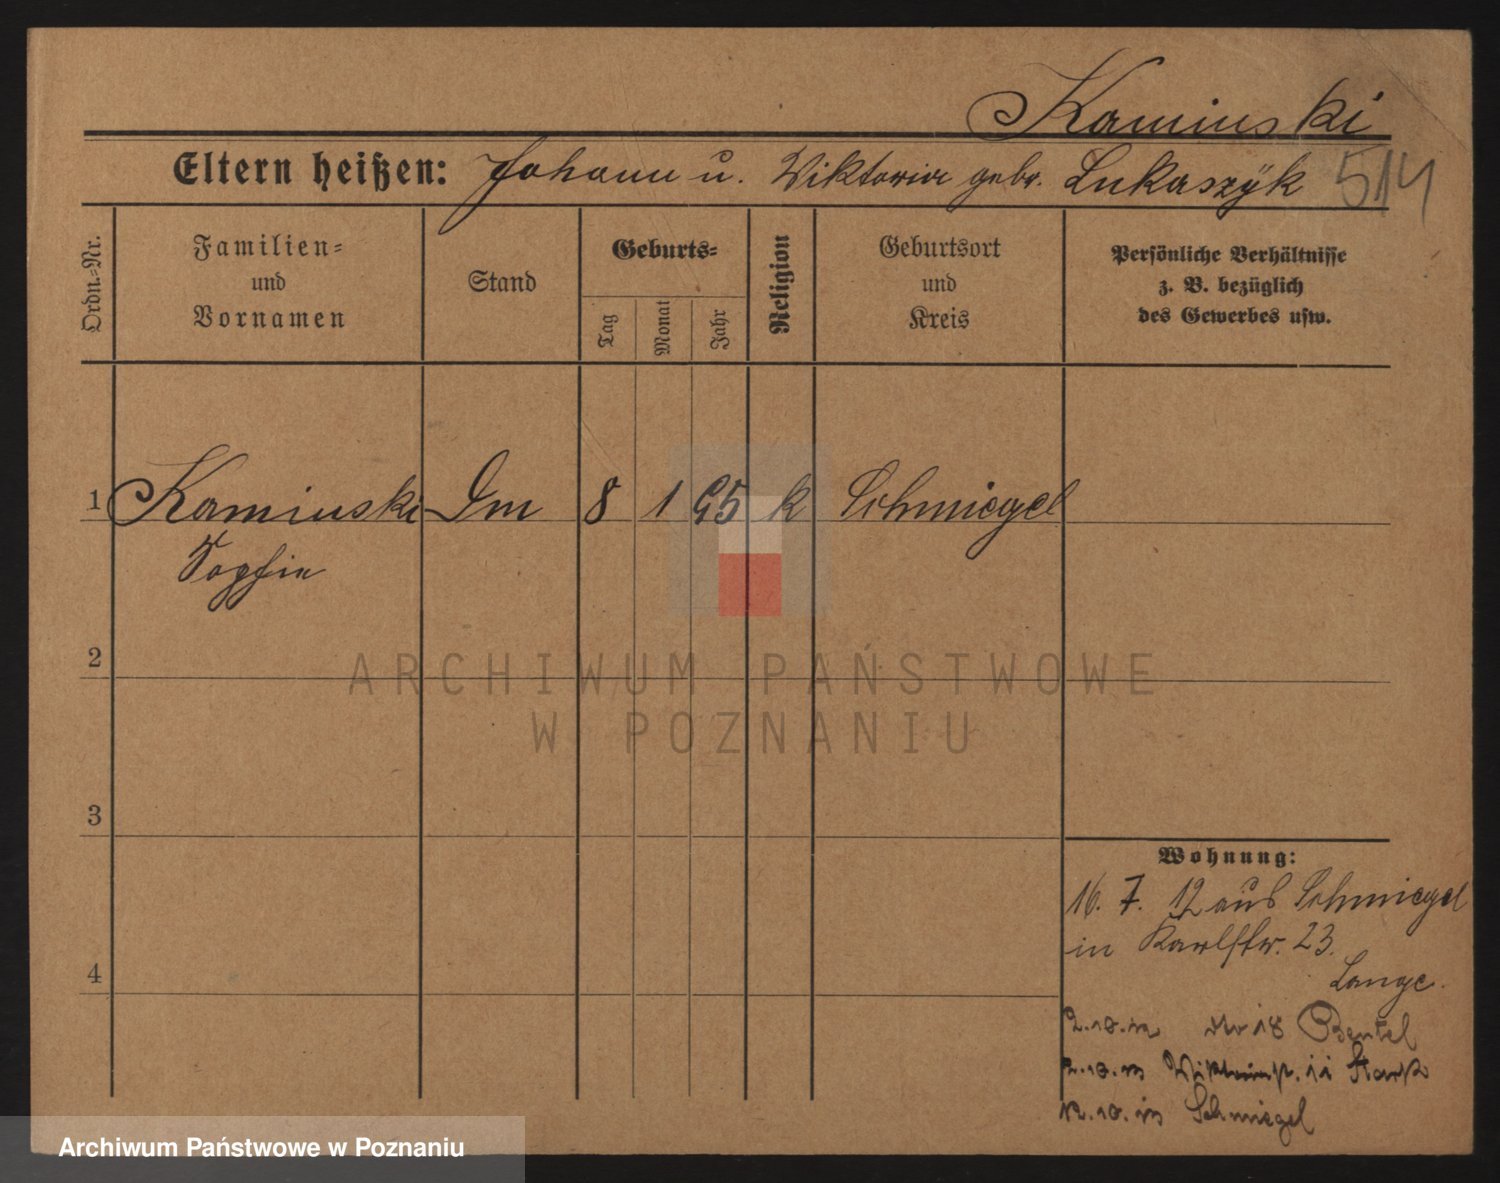 Kaminski
Eltern heißen: Johann u. Viktoria gebr. Lukaszÿk 514
Ordn.-Nr.
Familien-
und
Vornamen
Stand
Geburts-
Tag
Monat
Jahr
Religion
Geburtsort
und
Kreis
Persönliche Verhältnisse
z. B. bezüglich
des Gewerbes usw.
1 Kaminski 8 1 95 k Schmiegel
Sophie
2
3
4
Wohnung:
16. 7. 12 aus Schmiegel
in Karlstr. 23.
Lange.
2.10.12 Nr 18 Bentel
2.10.13 11 Stark
12.10.13 Schmiegel
ARCHIWUM PAŃSTWOWE
W POZNANIU
Archiwum Państwowe w Poznaniu